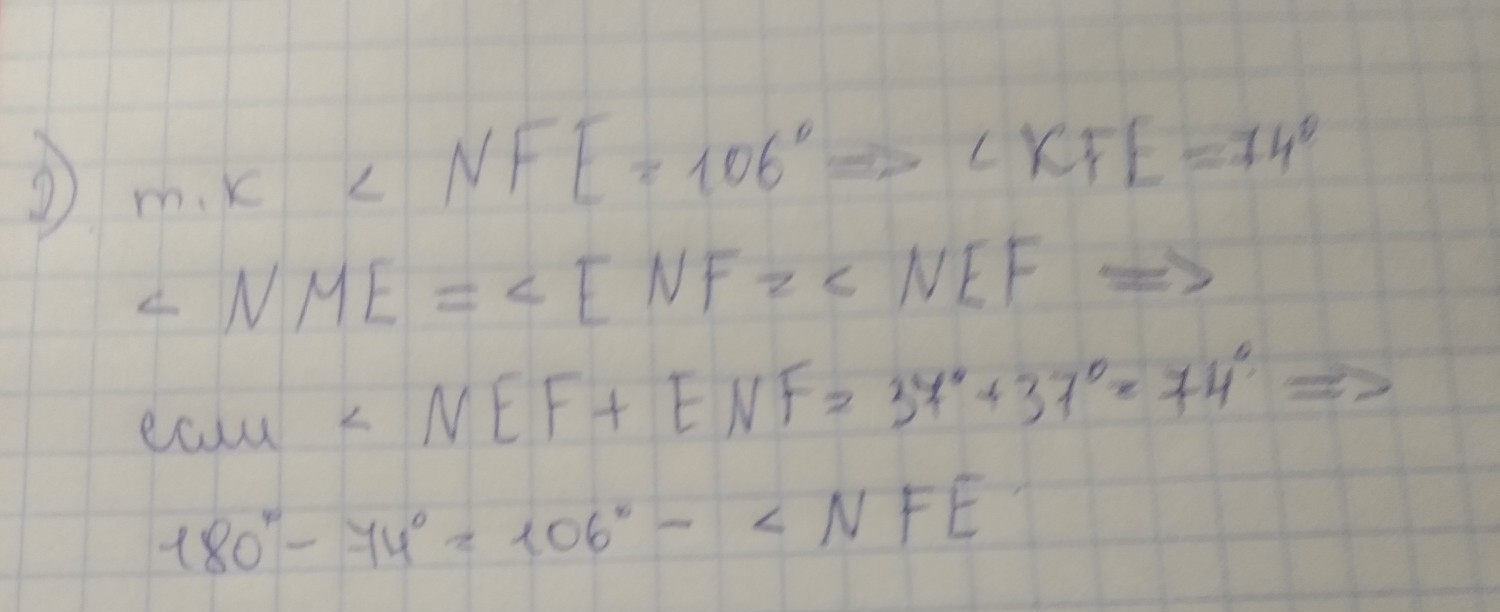 2) т.к < NFE = 106° => < KFE = 74°
< NME = < ENF = < NEF =>
если < NEF + ENF = 37° + 37° = 74° =>
180° - 74° = 106° - < NFE